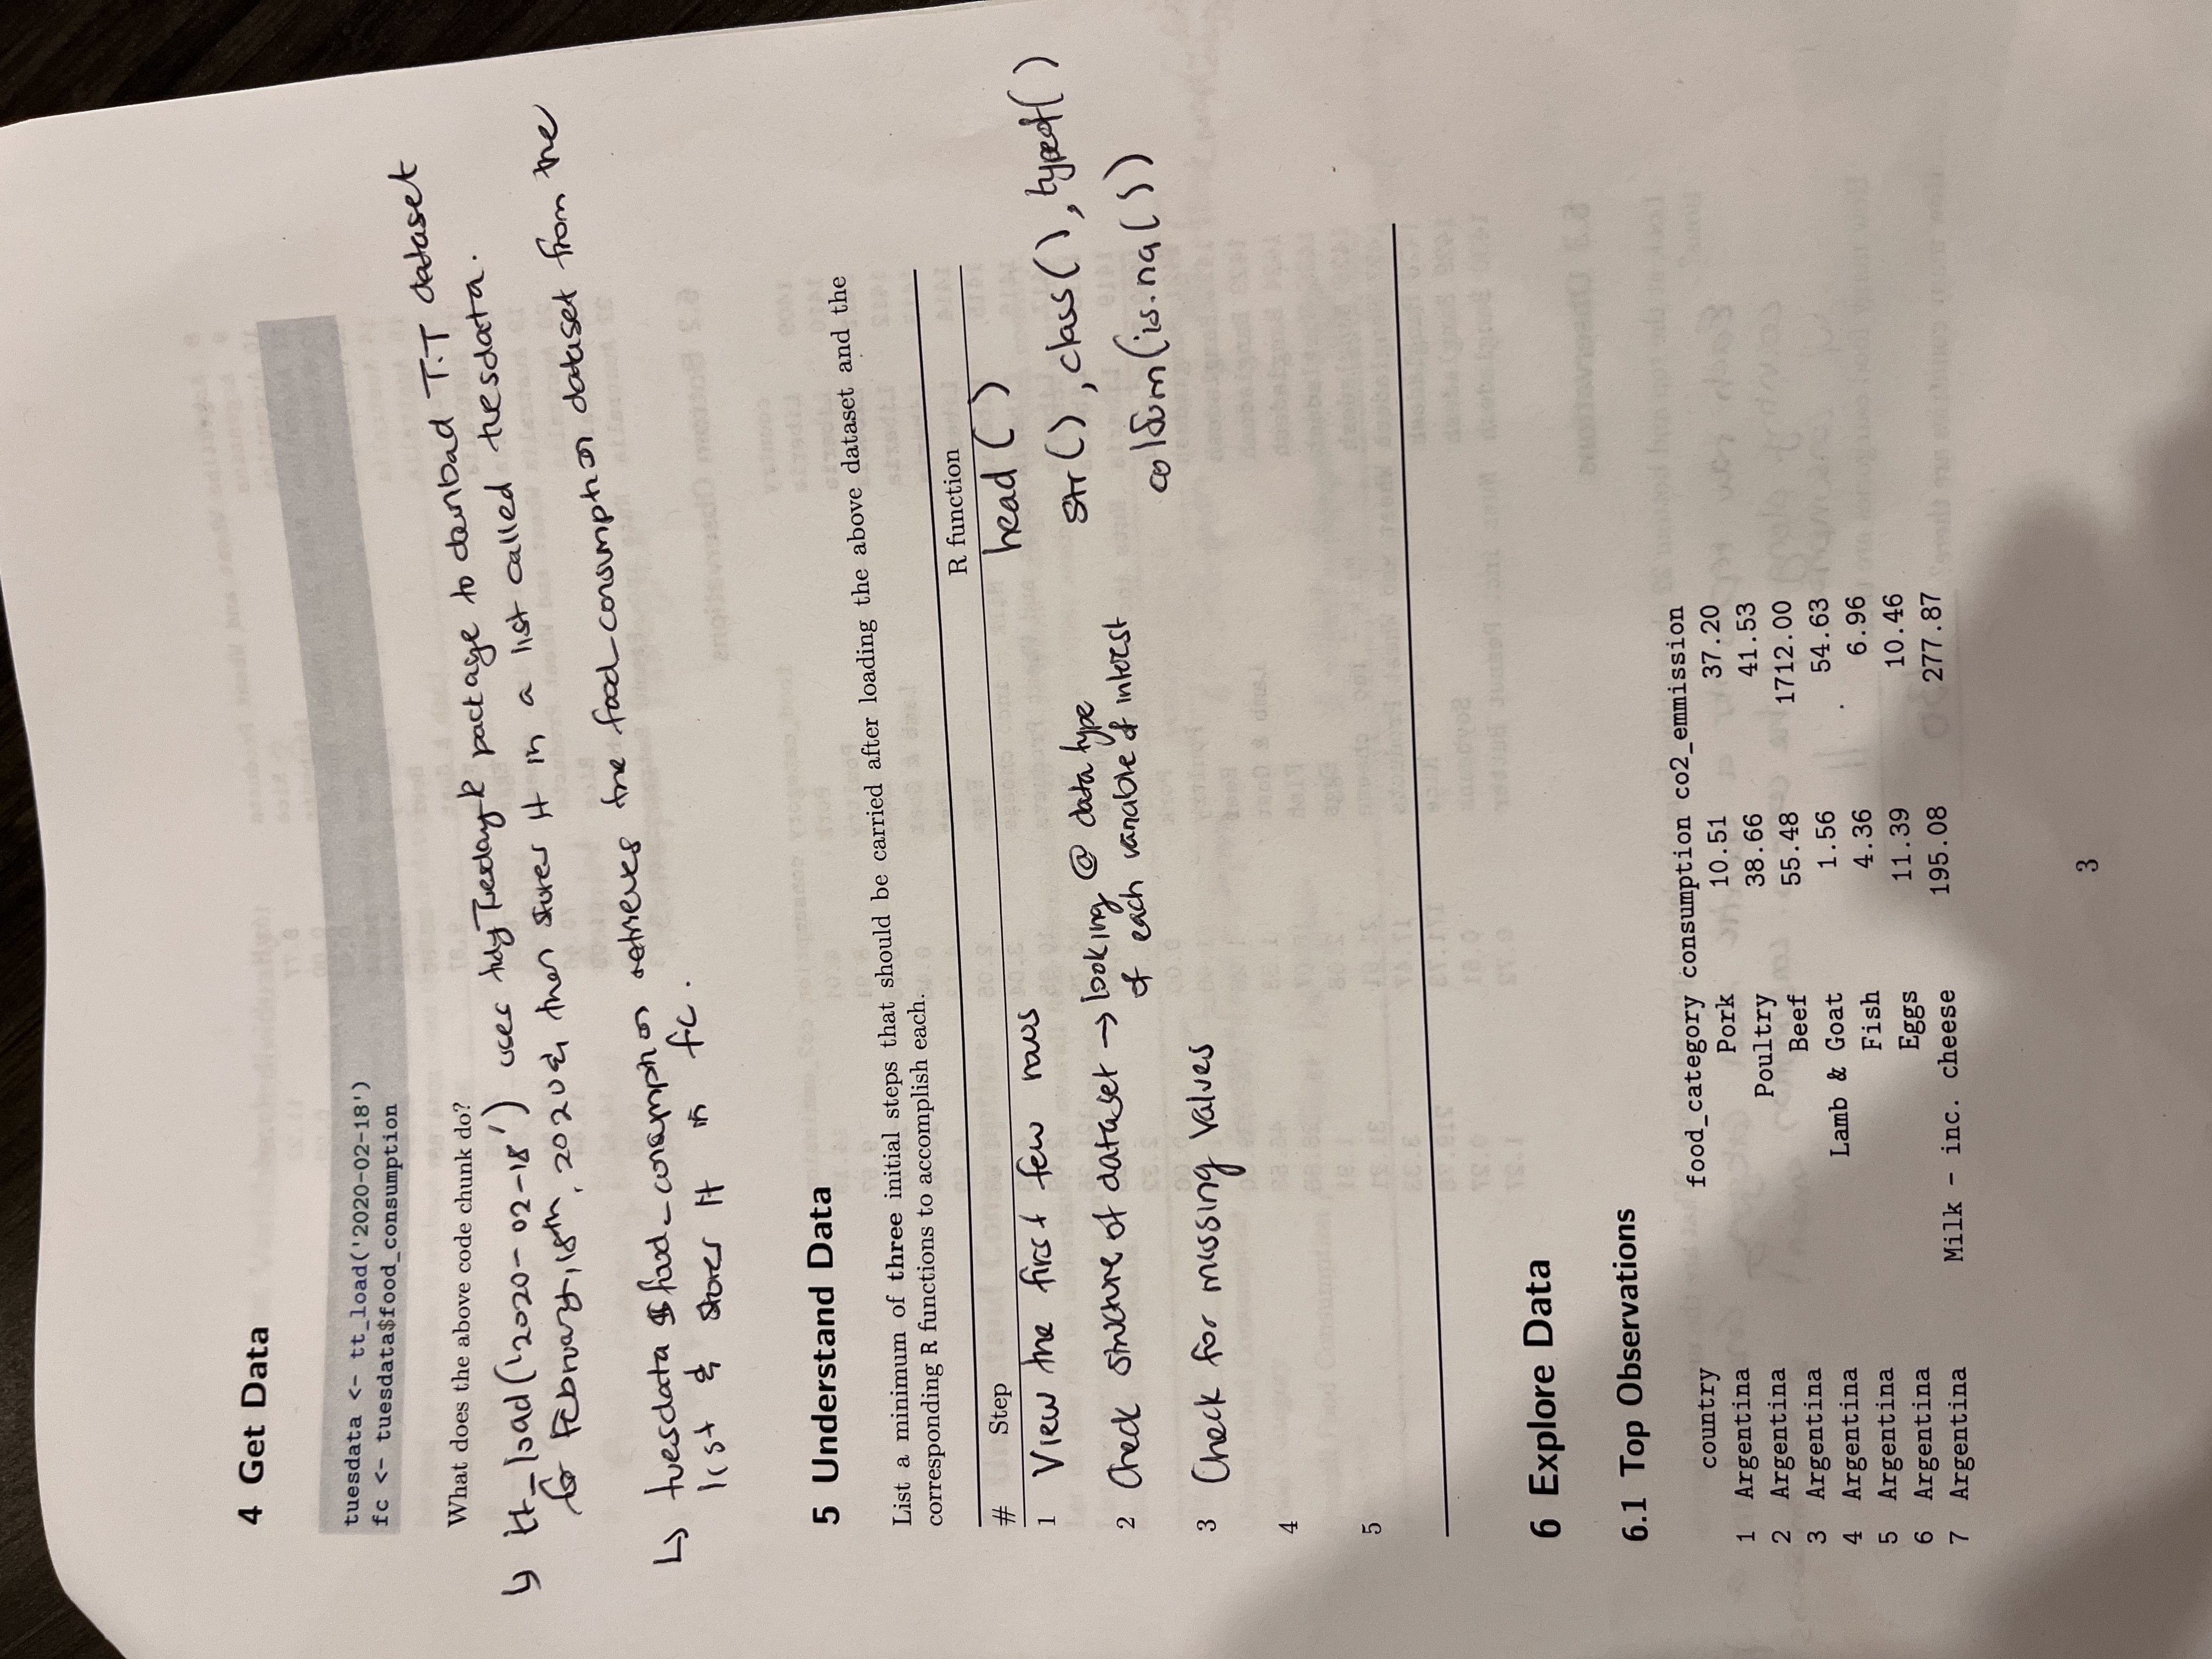 4 Get Data
tuesdata <- tt_load('2020-02-18')
fc <- tuesdata$food_consumption
What does the above code chunk do?
↳ tt_load('2020-02-18') uses tidyTuesdayR package to download T.T dataset
for February, 18th, 2020 & then stores it in a list called tuesdata.
↳ tuesdata $food_consumption retrieves the food_consumption dataset from the
list & stores it in fc.
5 Understand Data
List a minimum of three initial steps that should be carried after loading the above dataset and the
corresponding R functions to accomplish each.
# Step R function
1 View the first few rows head()
2 Check structure of dataset → looking @ data type str(), class(), typeof()
of each variable of interest
3 Check for missing values colSum(is.na())
4
5
6 Explore Data
6.1 Top Observations
country food_category consumption co2_emmission
1 Argentina Pork 10.51 37.20
2 Argentina Poultry 38.66 41.53
3 Argentina Beef 55.48 1712.00
4 Argentina Lamb & Goat 1.56 54.63
5 Argentina Fish 4.36 6.96
6 Argentina Eggs 11.39 10.46
7 Argentina Milk - inc. cheese 195.08 277.87
3